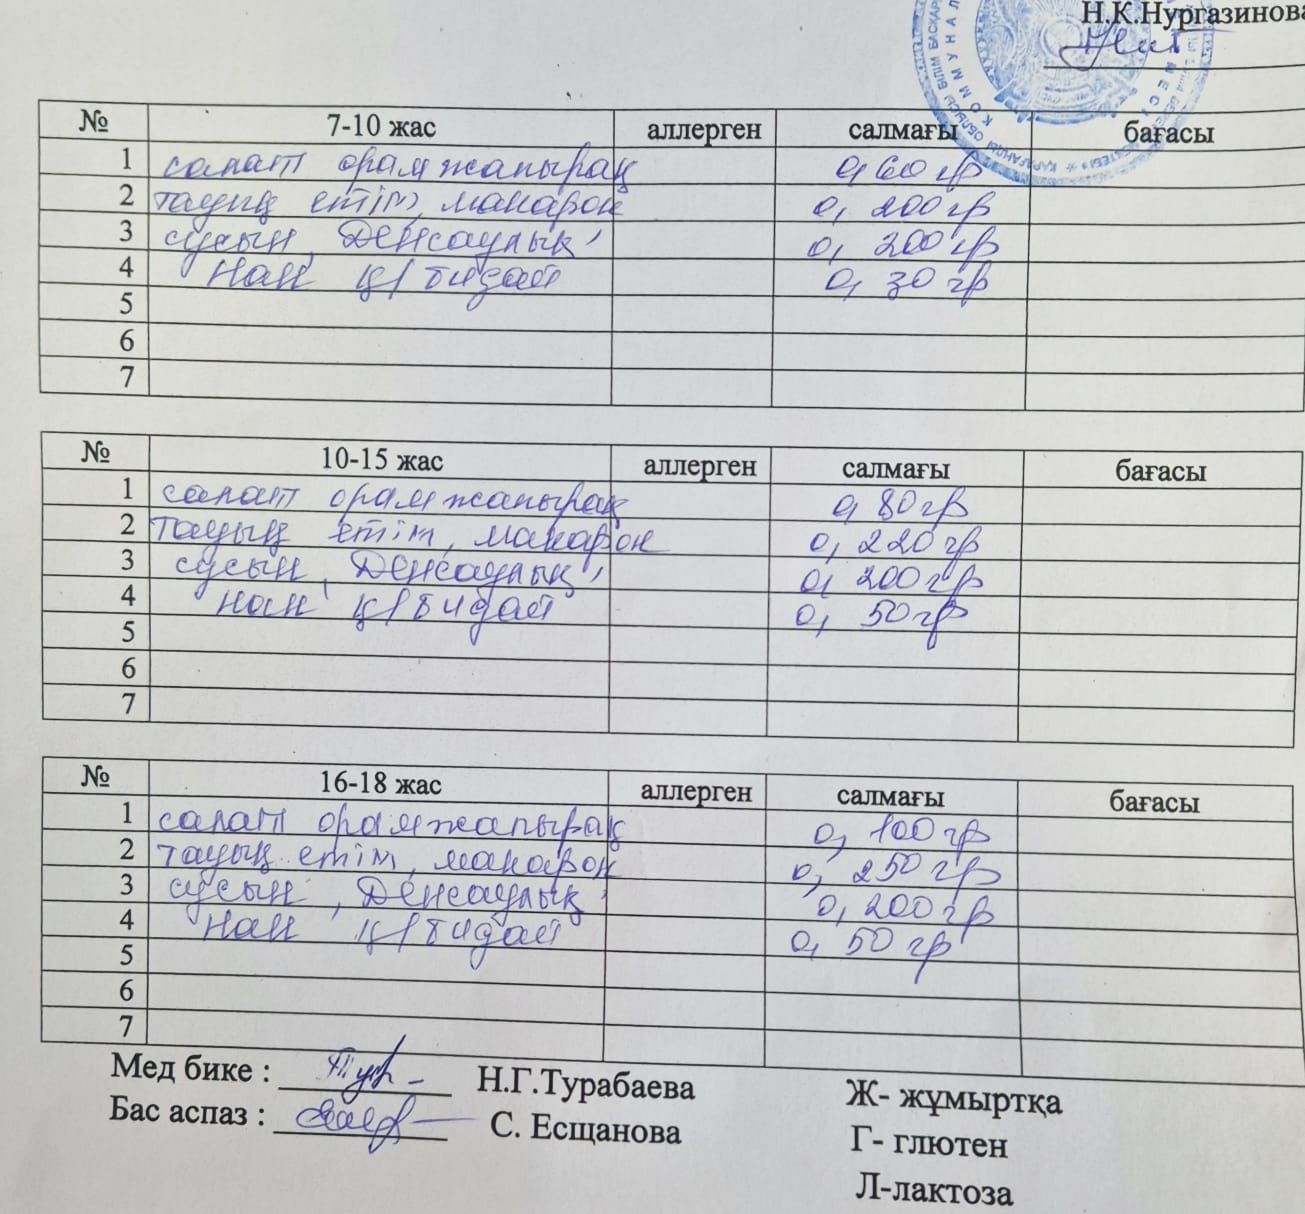 Н.К.Нургазинова
№ 7-10 жас аллерген салмағы бағасы
1 салат орамжапырақ 0,60 гр
2 тауық етім, макарон 0, 200 гр
3 сусын "Денсаулық" 0, 200 гр
4 нан қ/бидай 0, 30 гр
5
6
7
№ 10-15 жас аллерген салмағы бағасы
1 салат орамжапырақ 0, 80 гр
2 тауық етім, макарон 0, 220 гр
3 сусын "Денсаулық" 0, 200 гр
4 нан қ/бидай 0, 50 гр
5
6
7
№ 16-18 жас аллерген салмағы бағасы
1 салат орамжапырақ 0, 100 гр
2 тауық етім, макарон 0, 250 гр
3 сусын "Денсаулық" 0, 200 гр
4 нан қ/бидай 0, 50 гр
5
6
7
Мед бике : Н.Г.Турабаева
Бас аспаз : С. Есщанова
Ж- жұмыртқа
Г- глютен
Л-лактоза